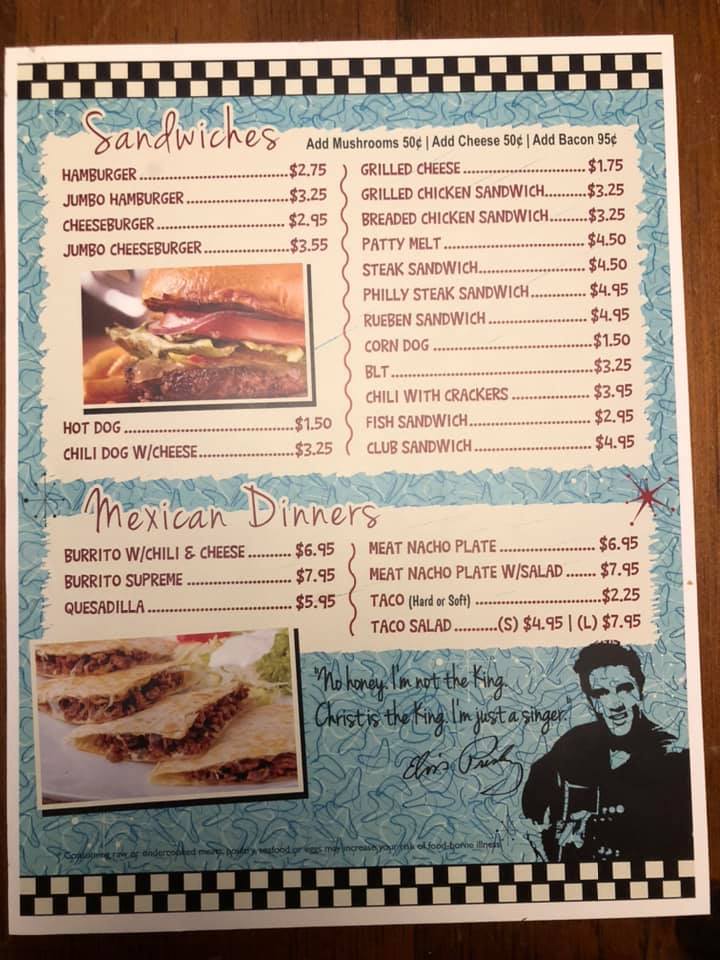 Sandwiches
Add Mushrooms 50¢ | Add Cheese 50¢ | Add Bacon 95¢
HAMBURGER.................................$2.75
JUMBO HAMBURGER......................$3.25
CHEESEBURGER............................$2.95
JUMBO CHEESEBURGER..................$3.55
HOT DOG....................................$1.50
CHILI DOG W/CHEESE....................$3.25
GRILLED CHEESE..........................$1.75
GRILLED CHICKEN SANDWICH.........$3.25
BREADED CHICKEN SANDWICH........$3.25
PATTY MELT..............................$4.50
STEAK SANDWICH........................$4.50
PHILLY STEAK SANDWICH............$4.95
RUEBEN SANDWICH.....................$4.95
CORN DOG..................................$1.50
BLT...........................................$3.25
CHILI WITH CRACKERS................$3.95
FISH SANDWICH..........................$2.95
CLUB SANDWICH.........................$4.95
Mexican Dinners
BURRITO W/CHILI & CHEESE.........$6.95
BURRITO SUPREME......................$7.95
QUESADILLA..............................$5.95
MEAT NACHO PLATE....................$6.95
MEAT NACHO PLATE W/SALAD......$7.95
TACO (Hard or Soft)..........................$2.25
TACO SALAD.........(S) $4.95 | (L) $7.95
"No honey. I'm not the King.
Christ is the King. I'm just a singer."
Elvis Presley
* Consuming raw or undercooked meats, poultry, seafood or eggs may increase your risk of food-borne illness